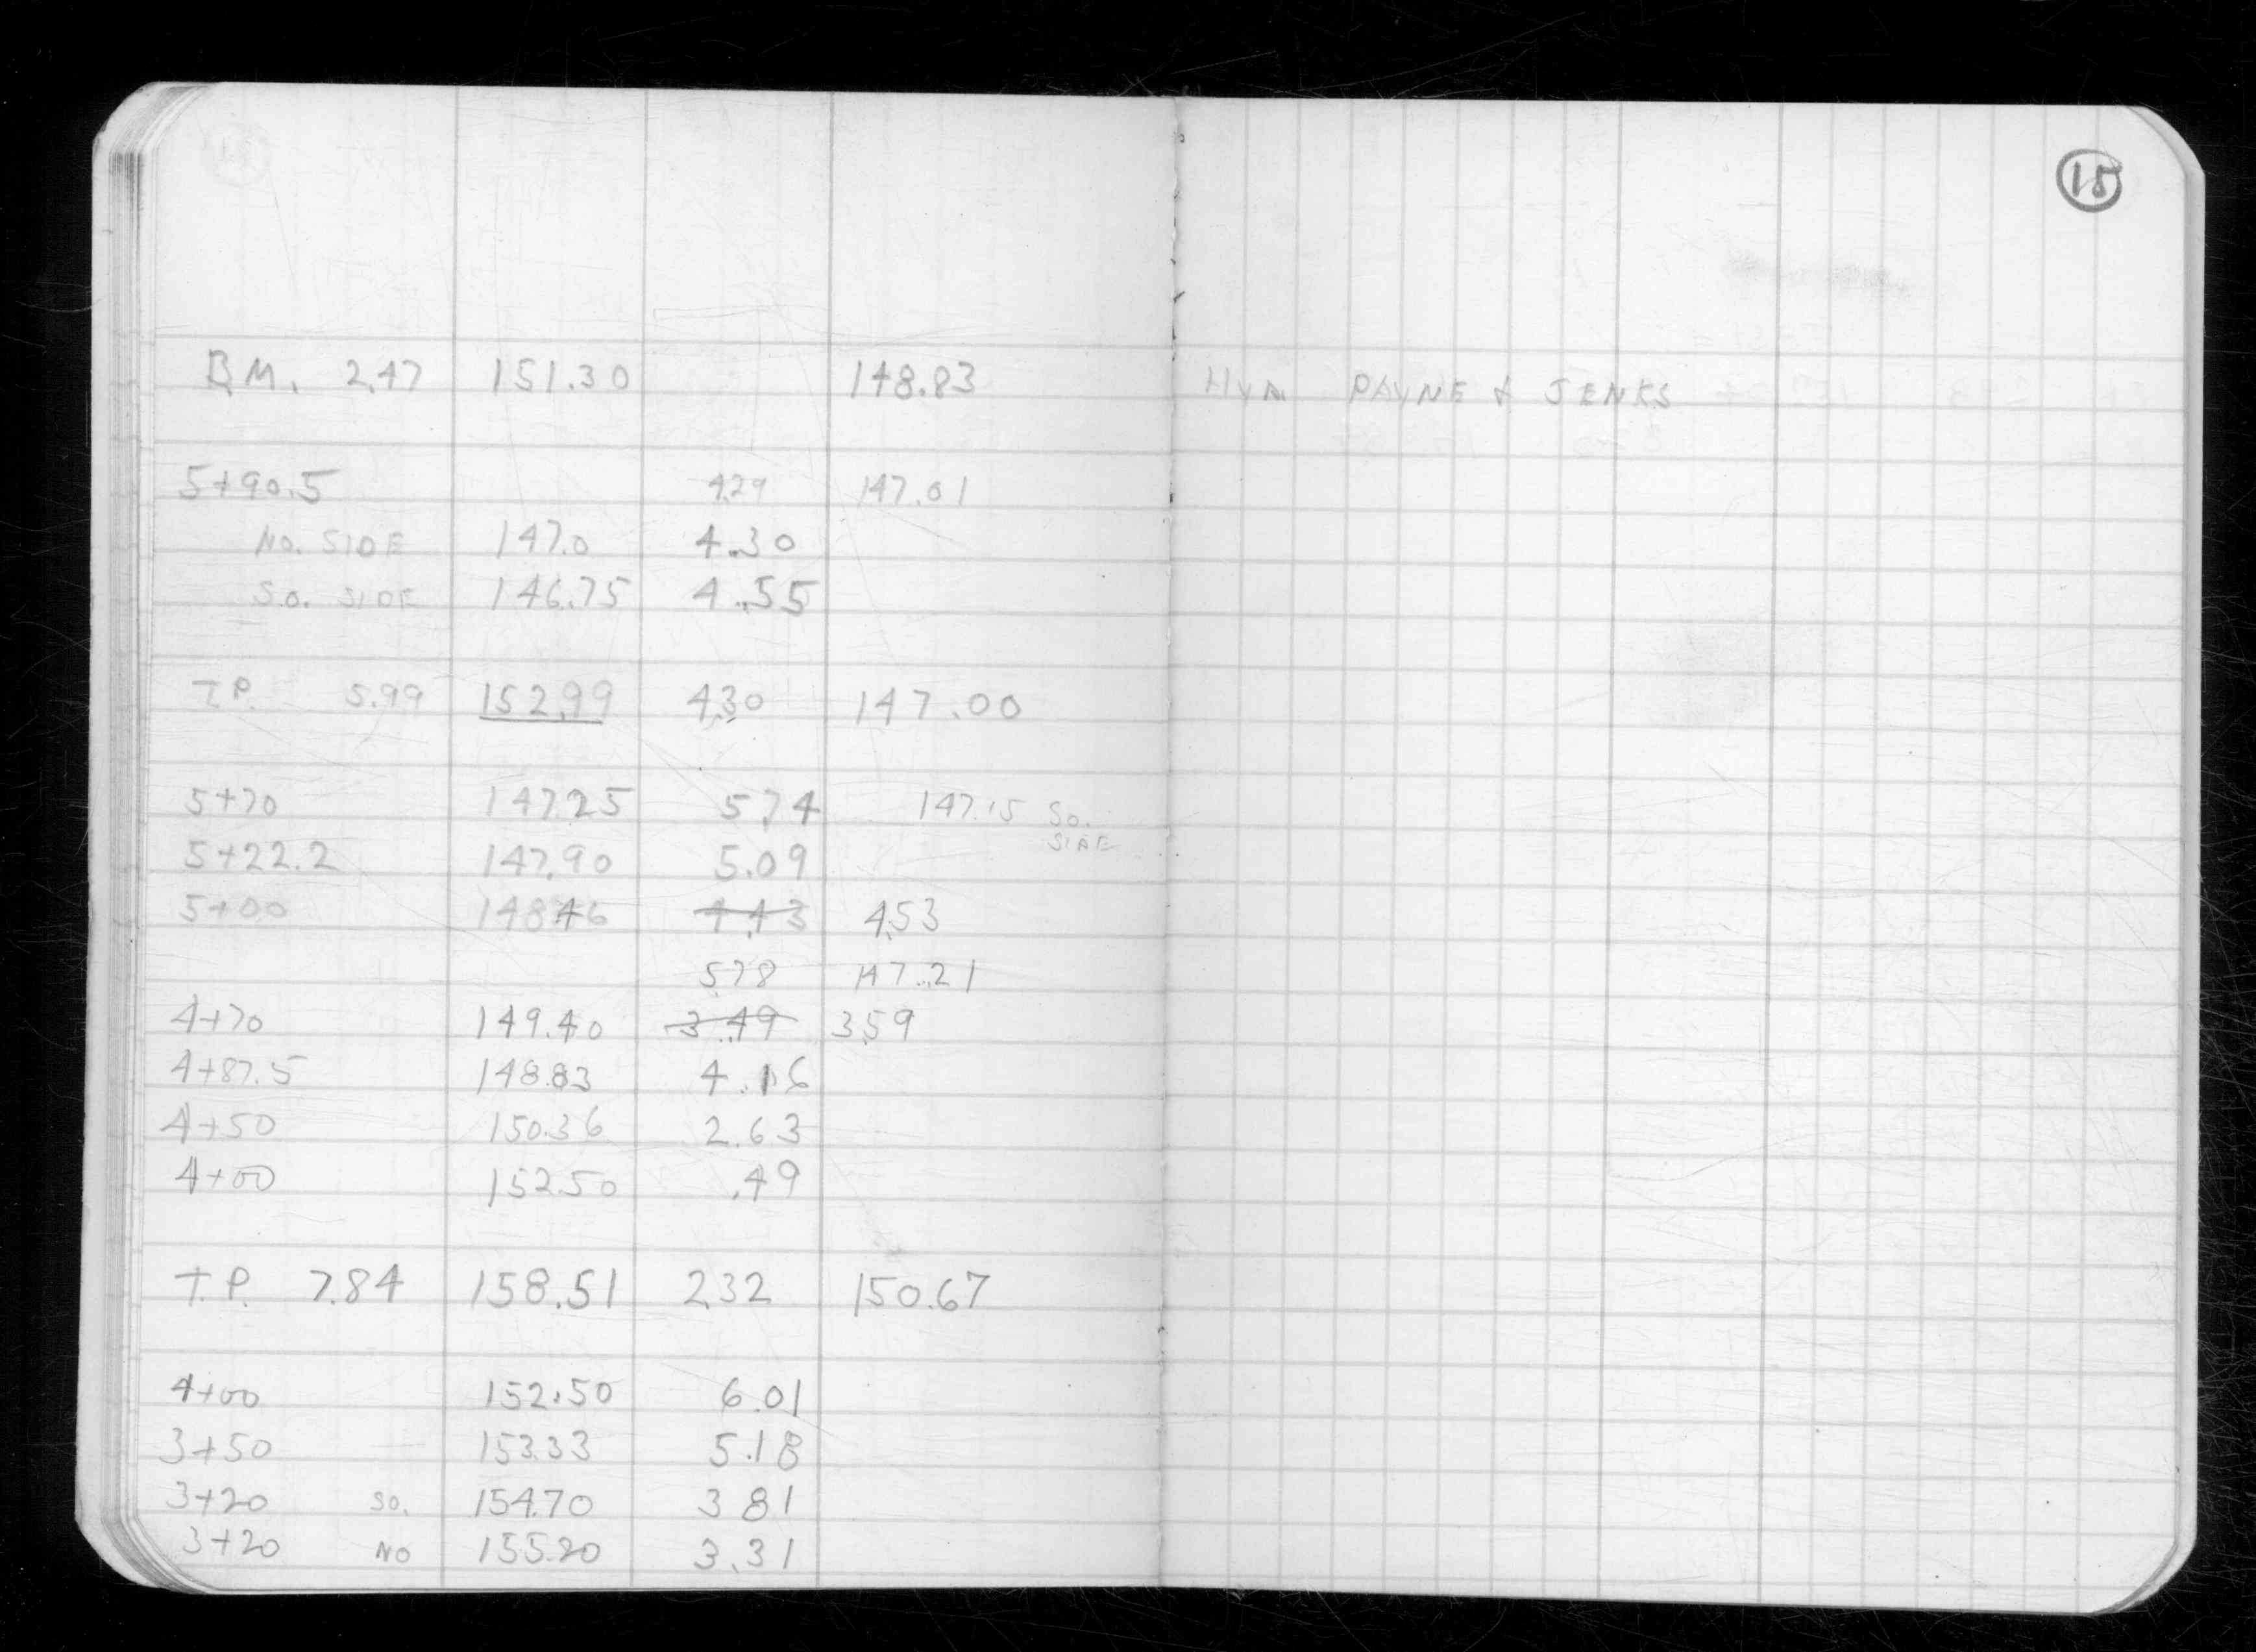 15
B.M. 2.47 151.30 148.83 HYD. PAYNE & JENKS
5+90.5 4.29 147.01
NO. SIDE 147.0 4.30
SO. SIDE 146.75 4.55
T.P. 5.99 152.99 4.30 147.00
5+70 147.25 5.74 147.15 SO.
SIDE
5+22.2 147.90 5.09
5+00 148.46 4.43 4.53
5.78 147.21
4+70 149.40 3.49 3.59
4+87.5 148.83 4.16
4+50 150.36 2.63
4+00 152.50 .49
T.P. 7.84 158.51 2.32 150.67
4+00 152.50 6.01
3+50 153.33 5.18
3+20 SO. 154.70 3.81
3+20 NO 155.20 3.31